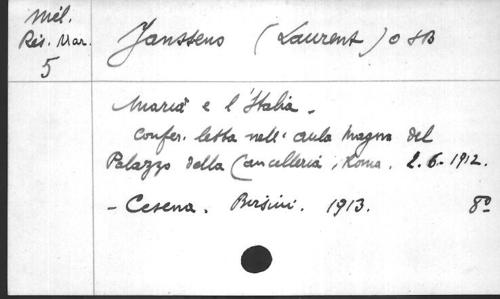 Mél.
Rés. Mar.
5
Janssens (Laurent) O SB
Maria e l'Italia.
Confer. letta nell' aula magna del
Palazzo della Cancelleria, Roma. 2.6.1912.
- Cesena. Bersini. 1913. 8º